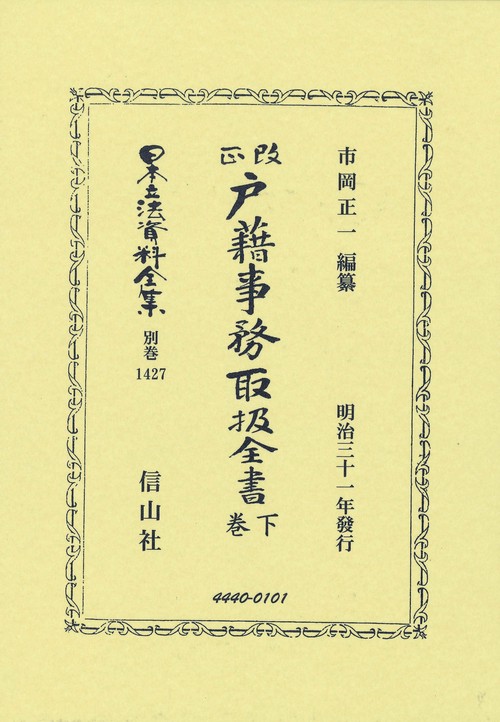 市岡正一 編纂
明治三十一年發行
改正
戸藉事務取扱全書
下巻
日本立法資料全集
別巻
1427
信山社
4440-0101